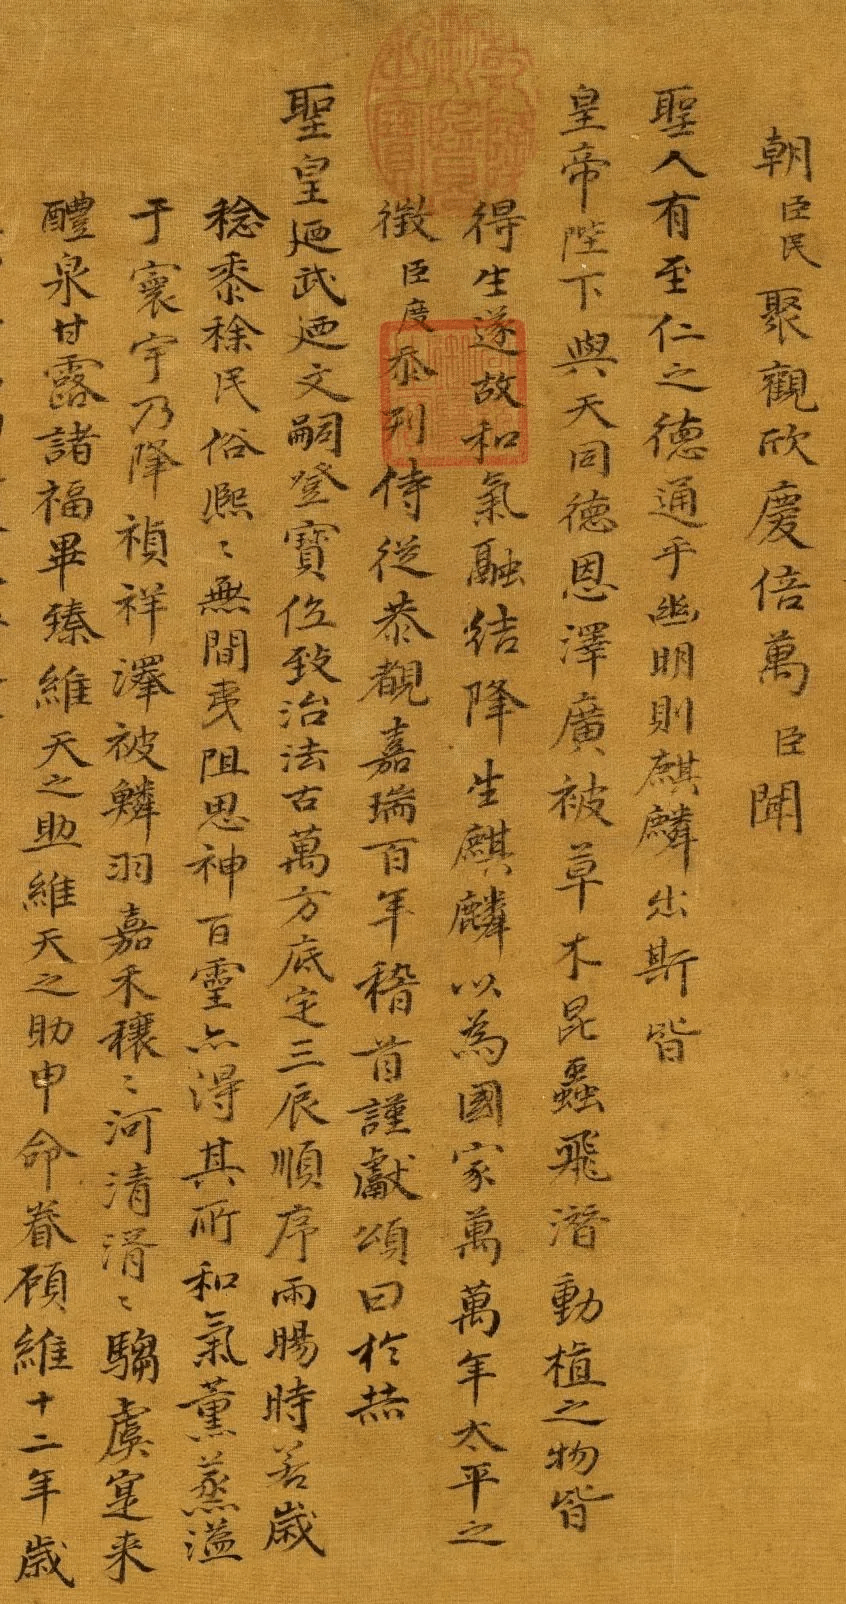 朝臣民聚觀欣慶倍萬臣聞
聖人有至仁之德通乎幽明則麒麟出斯皆
皇帝陛下與天同德恩澤廣被草木昆蟲飛潛動植之物皆
得生遂故和氣融結降生麒麟以為國家萬萬年太平之
徵臣度忝列侍從恭覩嘉瑞百年稽首謹獻頌曰於赫
聖皇廼武廼文嗣登寶位致治法古萬方底定三辰順序雨暘時若歲
稔黍稌民俗熙〻無間夷阻思神百靈亦得其所和氣薰蒸溢
于寰宇乃降禎祥澤被鱗羽嘉禾穰〻河清湑〻騶虞寔來
醴泉甘露諸福畢臻維天之助維天之助申命眷顧維十二年歲